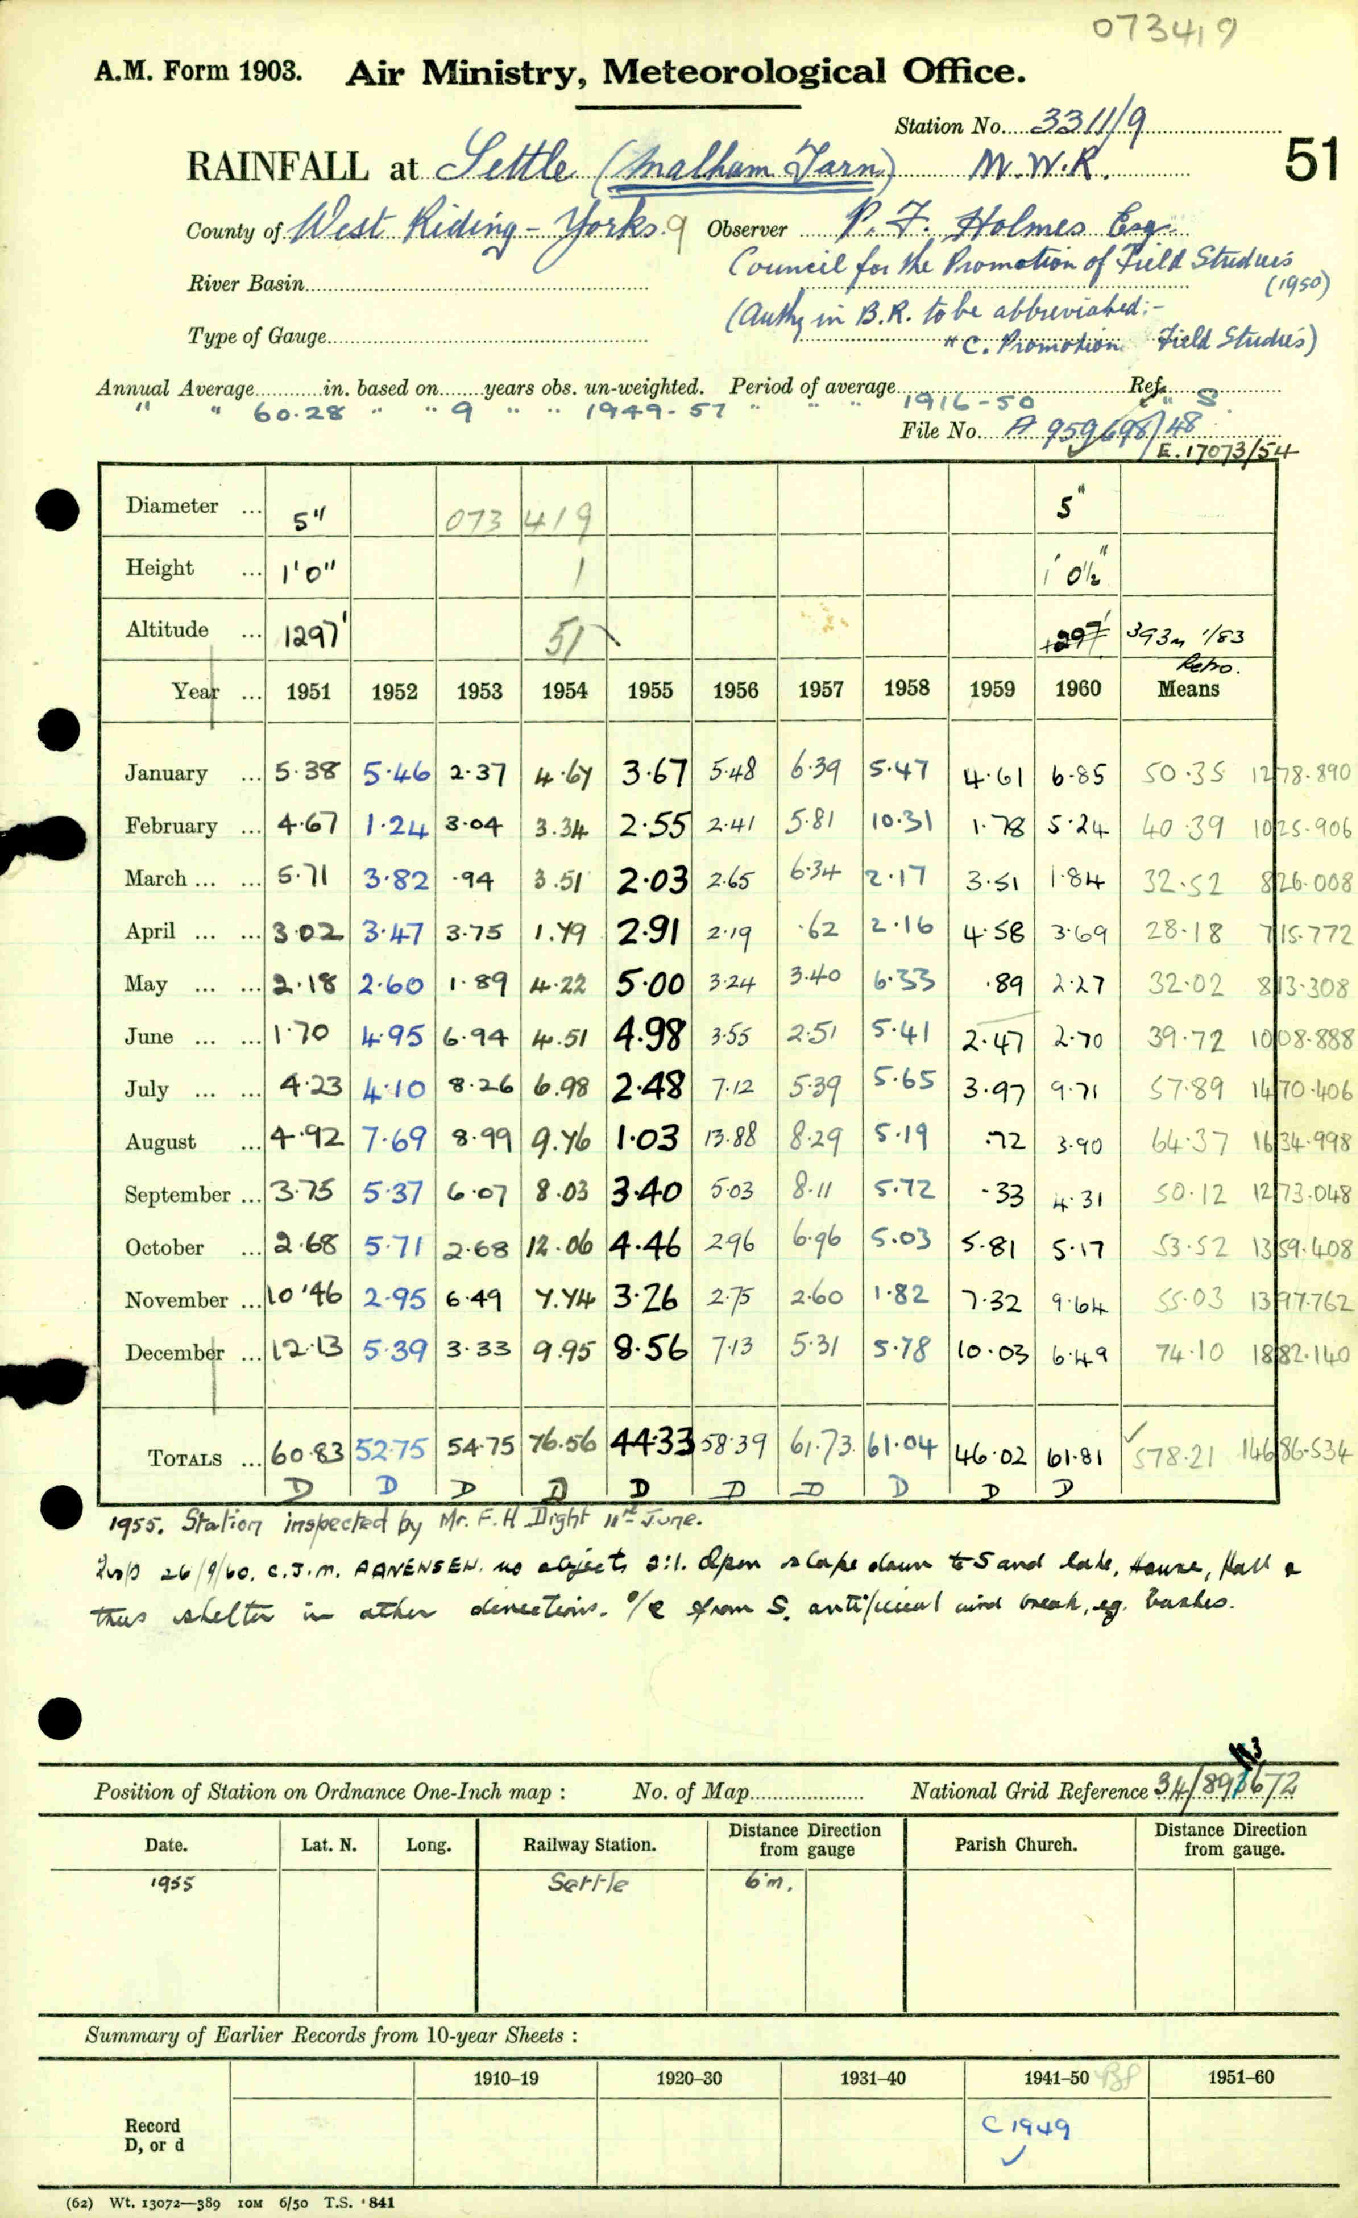 073419
A.M. Form 1903. Air Ministry, Meteorological Office.
Station No. 3311/9
RAINFALL at Settle (Malham Tarn) M.W.R. 51
County of West Riding - Yorks. 9 Observer P. F. Holmes Esq.
Council for the Promotion of Field Studies
River Basin (1950)
(Auth, in B.R. to be abbreviated:-
Type of Gauge "C. Promotion Field Studies)
Annual Average in. based on years obs. un-weighted. Period of average Ref.
" " 60.28 " " 9 " " 1949-57 " " " 1916-50 " S.
File No. A 959698/48
E.17073/54
Diameter ... 5" 073 419 5"
Height ... 1'0" 1 1' 0½"
Altitude ... 1297' 51 1297' 393m 1/83
Retro.
Year ... 1951 1952 1953 1954 1955 1956 1957 1958 1959 1960 Means
January ... 5.38 5.46 2.37 4.67 3.67 5.48 6.39 5.47 4.61 6.85 50.35 1278.890
February ... 4.67 1.24 3.04 3.34 2.55 2.41 5.81 10.31 1.78 5.24 40.39 1025.906
March ... ... 5.71 3.82 .94 3.51 2.03 2.65 6.34 2.17 3.51 1.84 32.52 826.008
April ... ... 3.02 3.47 3.75 1.79 2.91 2.19 .62 2.16 4.58 3.69 28.18 715.772
May ... ... 2.18 2.60 1.89 4.22 5.00 3.24 3.40 6.33 .89 2.27 32.02 813.308
June ... ... 1.70 4.95 6.94 4.51 4.98 3.55 2.51 5.41 2.47 2.70 39.72 1008.888
July ... ... 4.23 4.10 8.26 6.98 2.48 7.12 5.39 5.65 3.97 9.71 57.89 1470.406
August ... 4.92 7.69 8.99 9.76 1.03 13.88 8.29 5.19 .72 3.90 64.37 1634.998
September ... 3.75 5.37 6.07 8.03 3.40 5.03 8.11 5.72 .33 4.31 50.12 1273.048
October ... 2.68 5.71 2.68 12.06 4.46 2.96 6.96 5.03 5.81 5.17 53.52 1359.408
November ... 10.46 2.95 6.49 7.74 3.26 2.75 2.60 1.82 7.32 9.64 55.03 1397.762
December ... 12.13 5.39 3.33 9.95 8.56 7.13 5.31 5.78 10.03 6.49 74.10 1882.140
TOTALS ... 60.83 52.75 54.75 76.56 44.33 58.39 61.73 61.04 46.02 61.81 578.21 14686.534
D D D D D D D D D D
1955. Station inspected by Mr. F. H. Dight 11th June.
Insp 26/9/60. C.J.M. AANENSEN. no objects 2:1. Open slope down to S and lake, House, Hall &
thus shelter in other directions. O/E from S. artificial wind break, eg. bushes.
Position of Station on Ordnance One-Inch map : No. of Map National Grid Reference 34/89 672
Date. Lat. N. Long. Railway Station. Distance from Direction gauge Parish Church. Distance from Direction gauge.
1955 Settle 6 m.
Summary of Earlier Records from 10-year Sheets :
1910–19 1920–30 1931–40 1941–50 1951–60
Record
D, or d
C 1949
(62) Wt. 13072—389 10M 6/50 T.S. 841